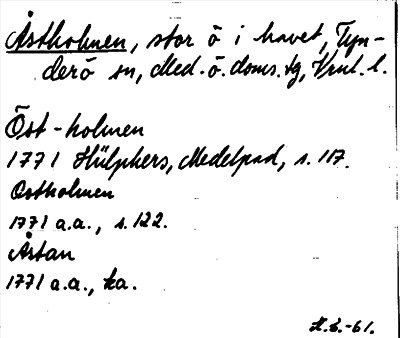 Åstholmen, stor ö i havet, Tyn-
derö sn, Med. ö. doms. tg, Vrnl. l.
Öst-holmen
1771 Hülphers, Medelpad, s. 117.
Ostholmen
1771 a.a., s. 122.
Åstan
1771 a.a., ka.
H.S.-61.